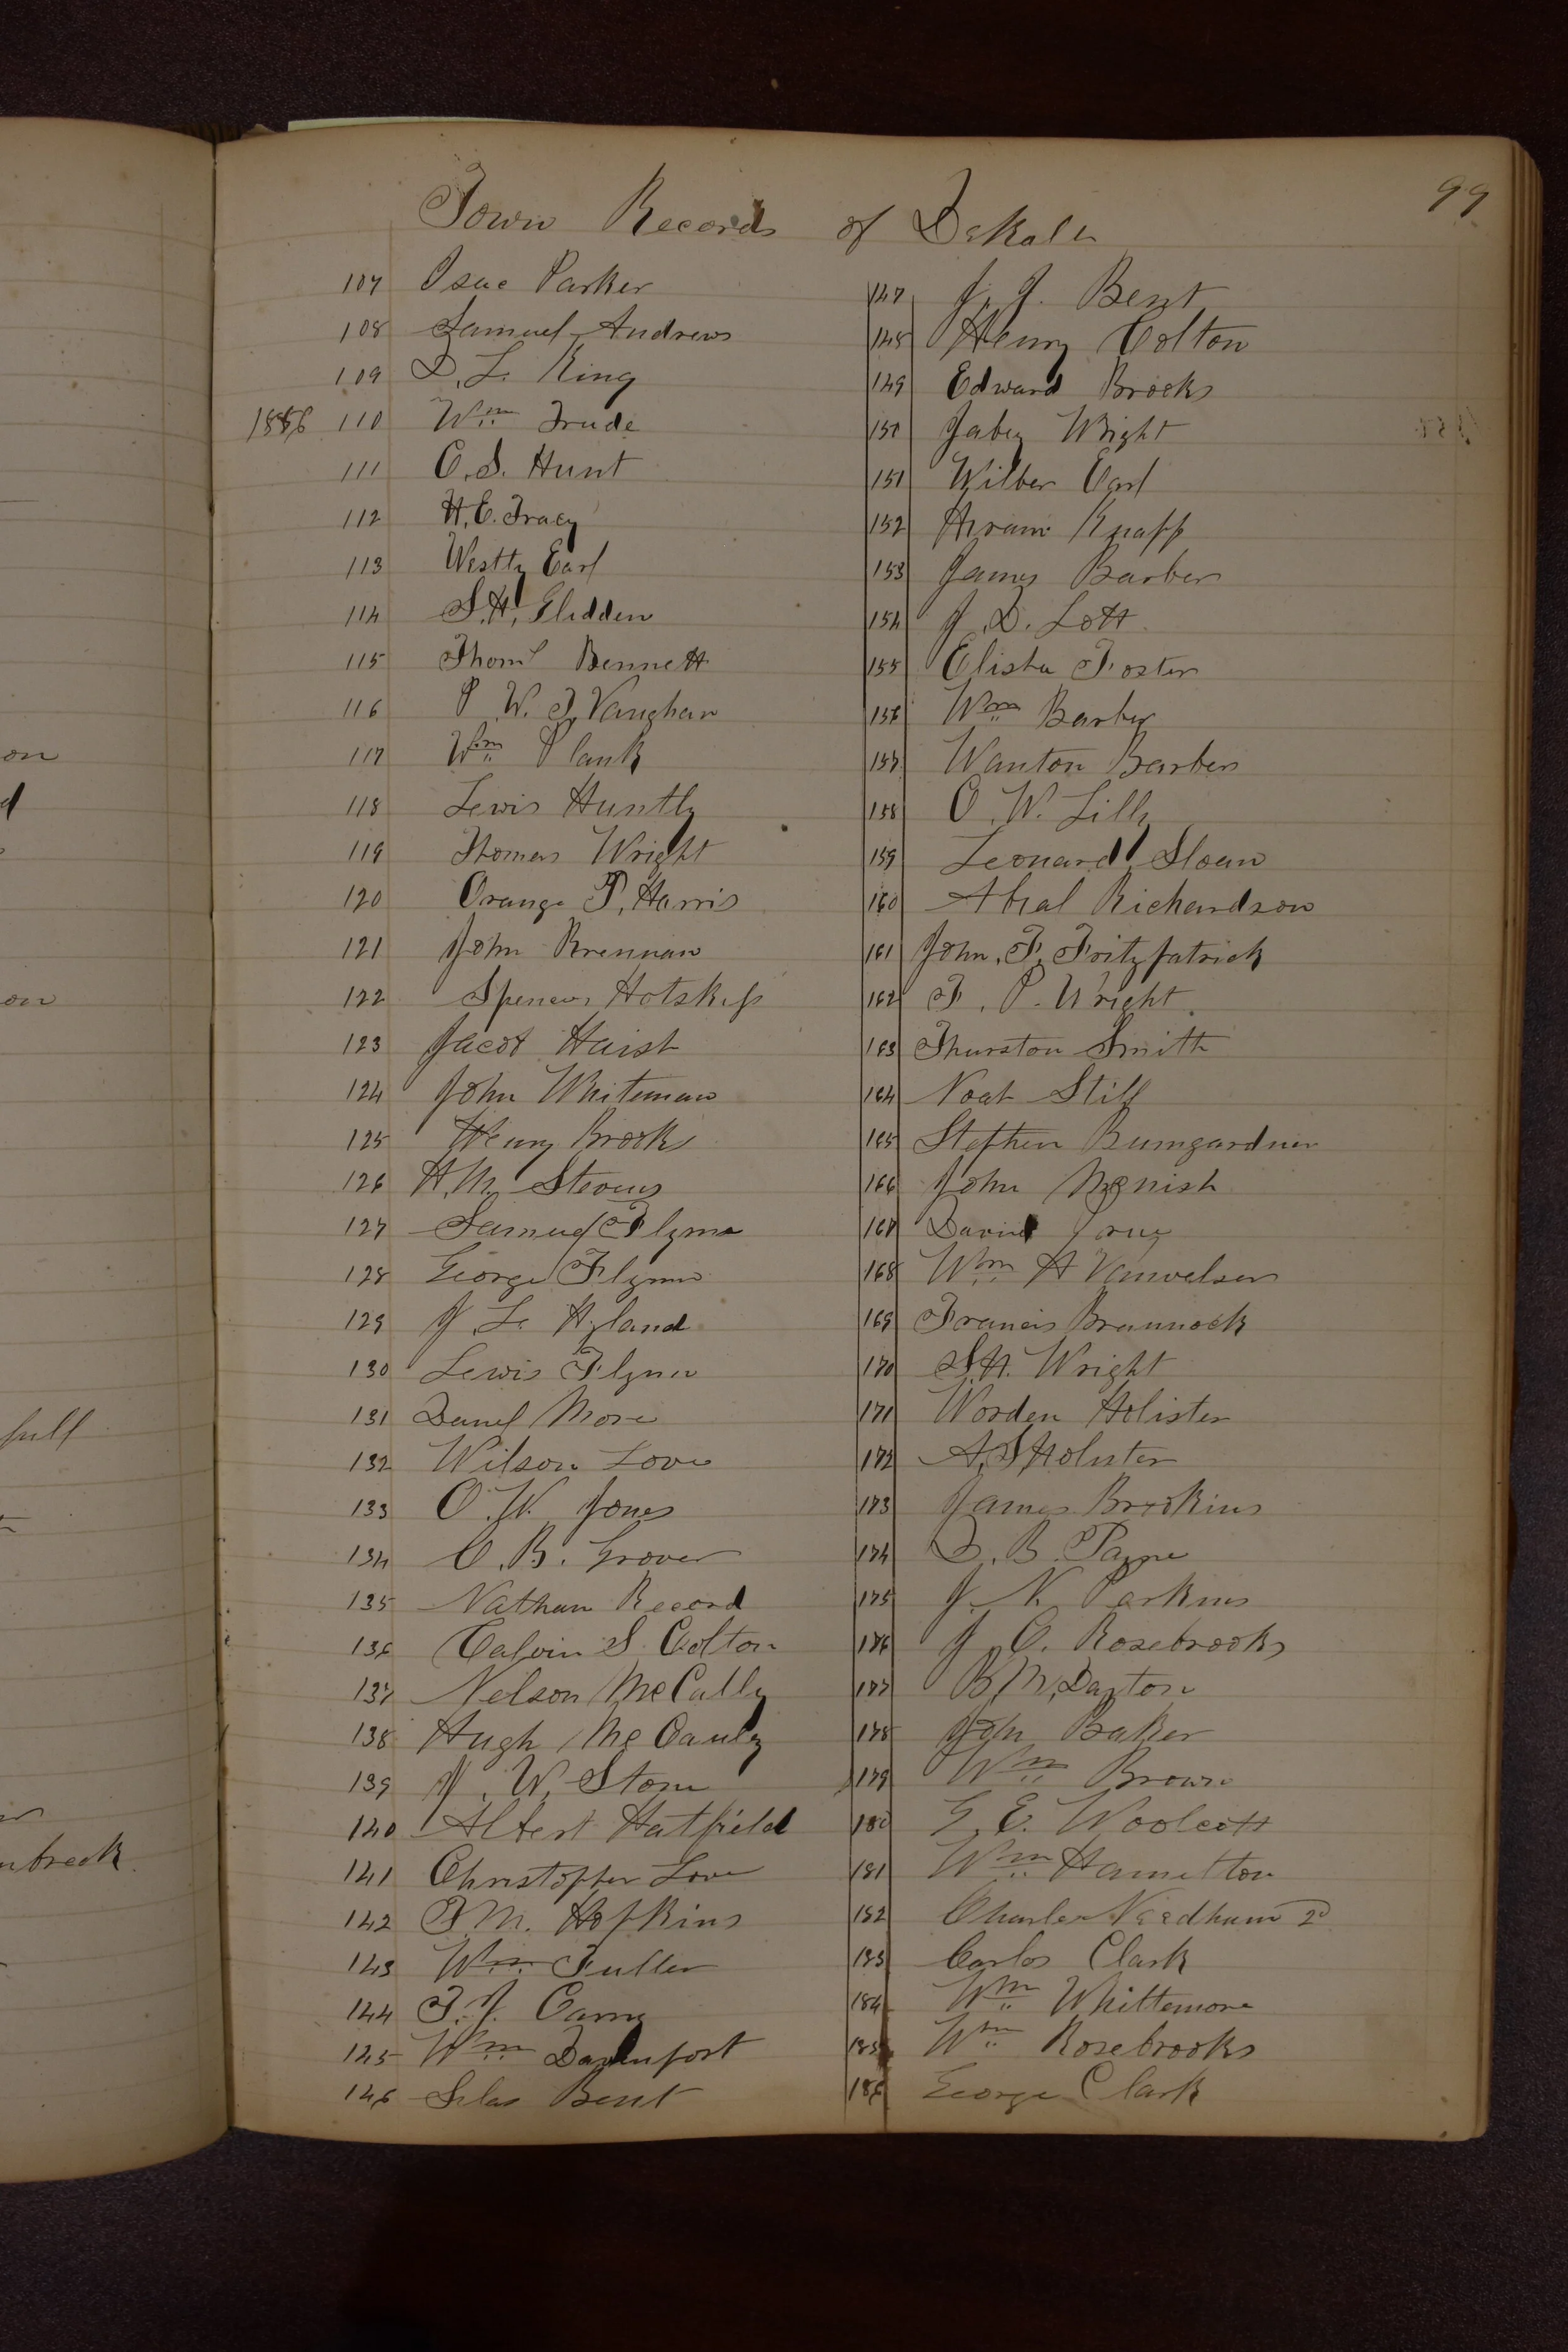 99
Town Records of DeKalb
107 Isac Parker
108 Samuel Andrews
109 D. L. King
1856 110 Wm Trude
111 C. S. Hunt
112 H. E. Tracy
113 Westly Earl
114 S. H. Glidden
115 Thoms Bennett
116 P. W. T. Vaughan
117 Wm Plank
118 Lewis Huntly
119 Thomas Wright
120 Orange P. Harris
121 John Brennan
122 Spencer Hotskiss
123 Jacob Haish
124 John Whiteman
125 Henry Brooks
126 H. M. Stevens
127 Samuel Flynn
128 George Flynn
129 J. L. Hyland
130 Lewis Flynn
131 Danel More
132 Wilson Love
133 O. W. Jones
134 C. B. Grover
135 Nathan Record
136 Calvin S. Colton
137 Nelson McCally
138 Hugh McCauly
139 J. W. Stone
140 Albert Hatfield
141 Christopher Love
142 F. M. Hopkins
143 Wm Fuller
144 T. J.
145 Wm Davenport
146 Silas Bent
147 J. J. Bent
148 Henry Colton
149 Edward Brooks
150 Jabez Wright
151 Wilber Earl
152 Hiram Knapp
153 James Barber
154 J. D. Lott
155 Elisha Foster
156 Wm Barber
157 Wanton Barber
158 O. W. Lilly
159 Leonard Sloan
160 Abial Richardson
161 John. F. Fritzpatrick
162 F. P. Wright
163 Thurston Smith
164 Noah Still
165 Stephen Bumgardner
166 John McNish
167 David
168 Wm H Vanvelser
169 Francis Brannock
170 S. H. Wright
171 Worden Holister
172 A. S. Holister
173 James Brookins
174 D. B. Payne
175 J. N. Perkins
176 J. C. Rosebrooks
177 B. M. Dayton
178 John Baker
179 Wm Brown
180 G. E. Woolcott
181 Wm Hamelton
182 Charles Needham 2d
183 Carlos Clark
184 Wm Whittemore
185 Wm Rosebrooks
186 George Clark